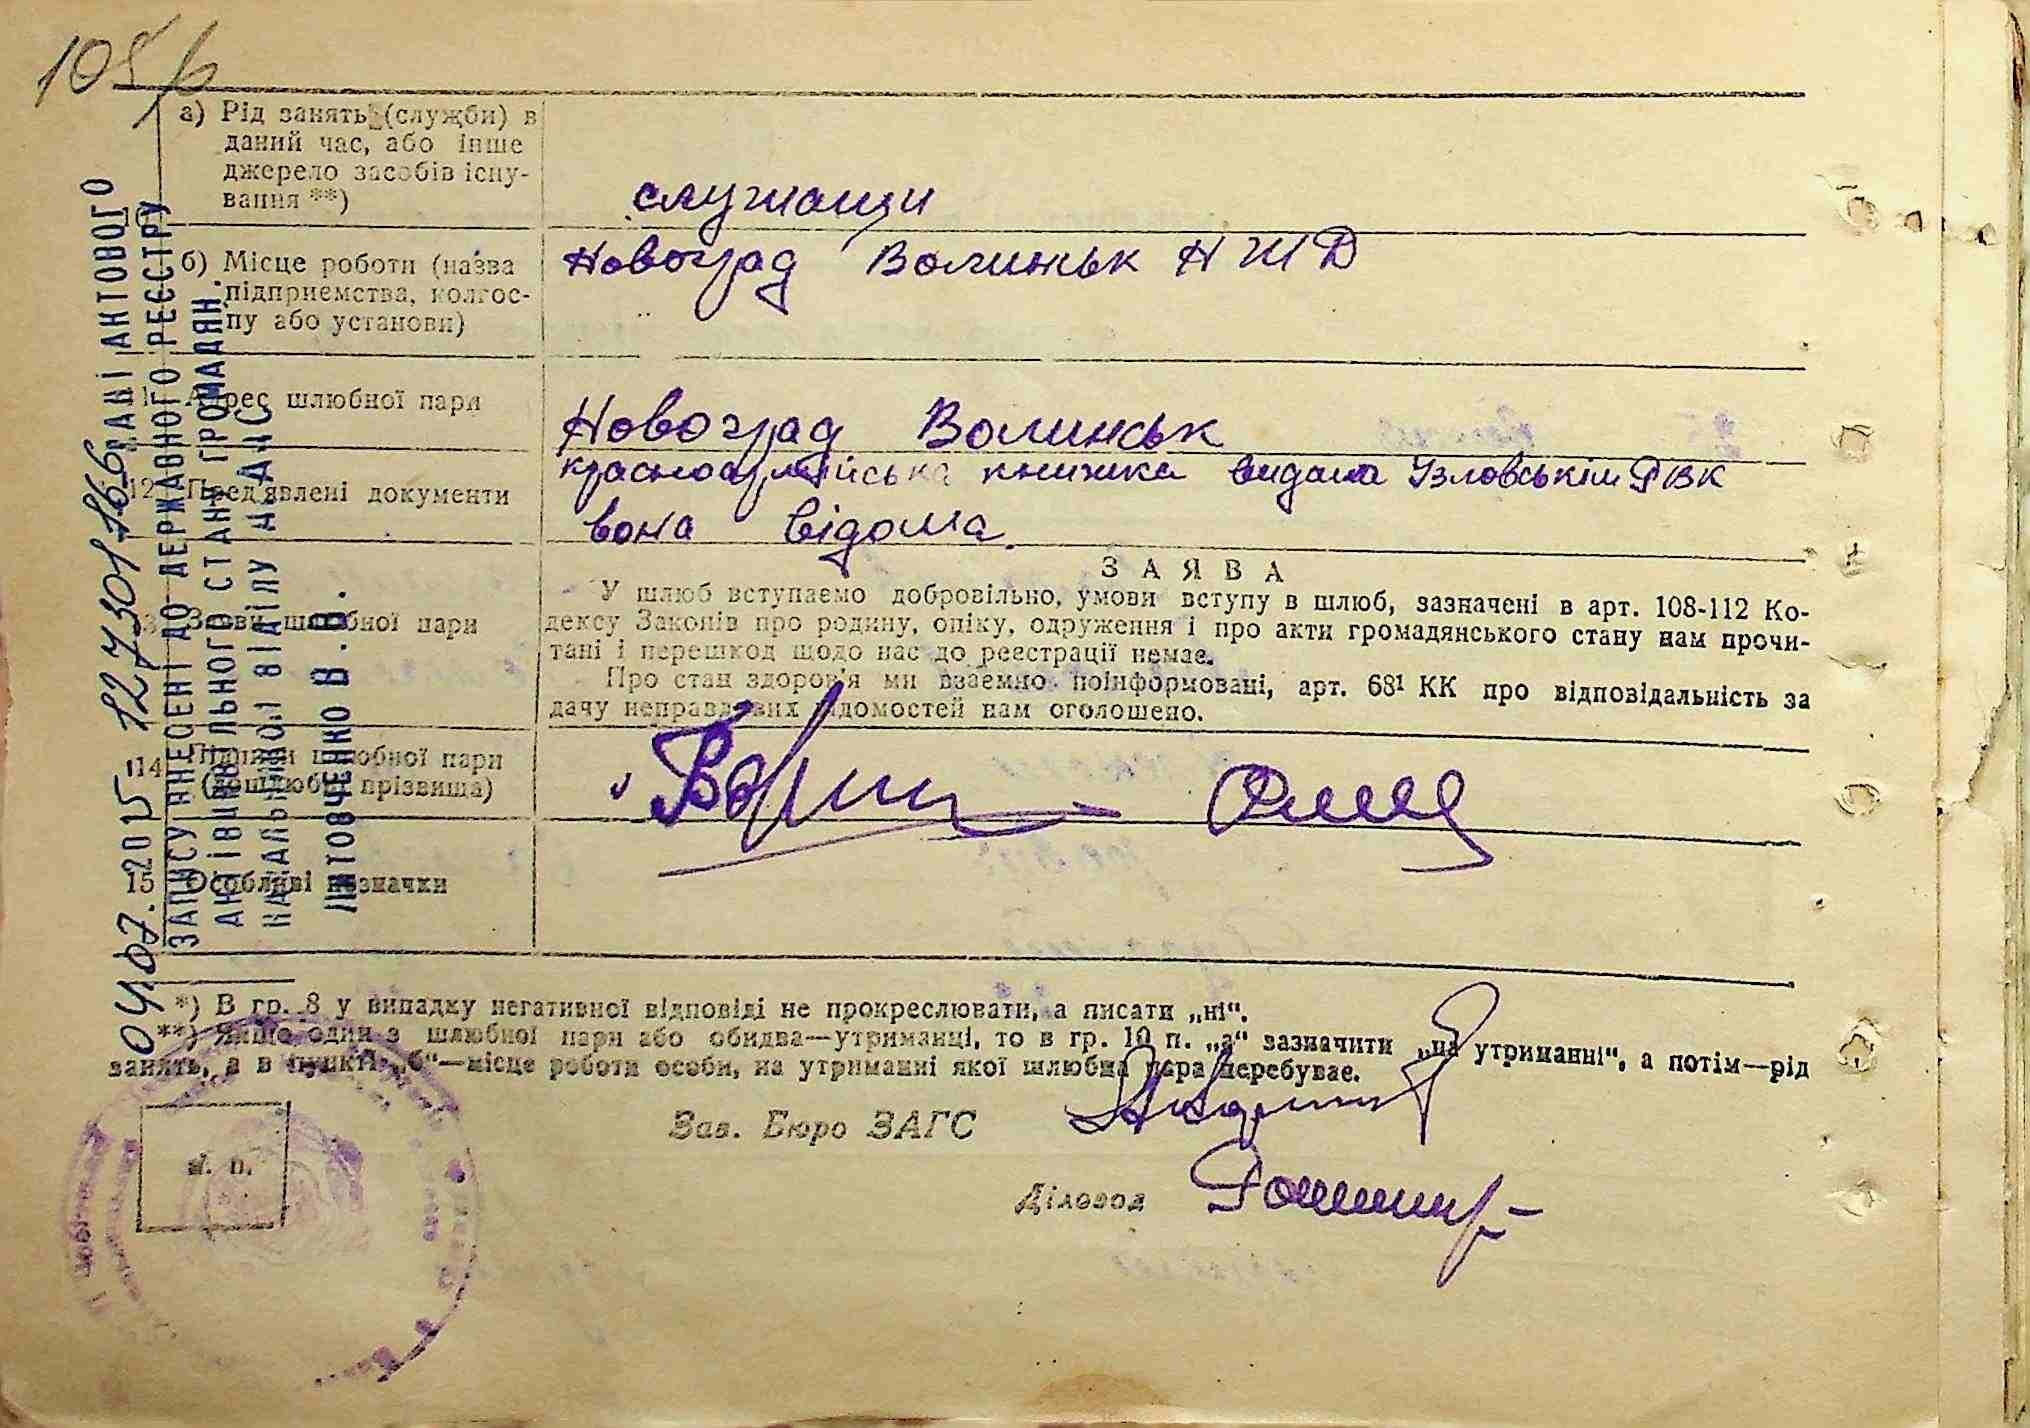 а) Рід занять (служби) в
даний час, або інше
джерело засобів існу-
вання **)
служащи
б) Місце роботи (назва
підприємства, колгос-
пу або установи)
Новоград Волиньк Н Ж Д
Адрес шлюбної пари
Новоград Волинськ
12 Пред'явлені документи
красноармійська книжка видана РВК
вона відома.
Заяви шлюбної пари
ЗАЯВА
У шлюб вступаємо добровільно, умови вступу в шлюб, зазначені в арт. 108-112 Ко-
дексу Законів про родину, опіку, одруження і про акти громадянського стану нам прочи-
тані і перешкод щодо нас до реєстрації немає.
Про стан здоров'я ми взаємно поінформовані, арт. 68¹ КК про відповідальність за
дачу неправдивих відомостей нам оголошено.
14 Підписи шлюбної пари
(дошлюбні прізвища)
15 Особливі позначки
*) В гр. 8 у випадку негативної відповіді не прокреслювати, а писати „ні“.
**) Якщо один з шлюбної пари або обидва—утриманці, то в гр. 10 п. „а“ зазначити „на утриманні“, а потім—рід
занять, а в пункті „б“—місце роботи особи, на утриманні якої шлюбна пара перебуває.
Зав. Бюро ЗАГС
Діловод
м. п.
04.07.2015 12730176
ДАНІ АКТОВОГО
ЗАПИСУ ВНЕСЕНІ ДО ДЕРЖАВНОГО РЕЄСТРУ
АКТІВ ЦИВІЛЬНОГО СТАНУ ГРОМАДЯН.
ВІДДІЛУ
В.В.